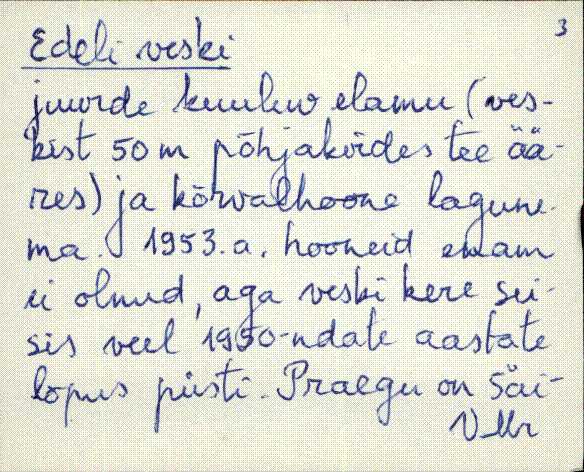 3
Edeli veski
juurde kuuluv elamu (ves-
kist 50 m põhjakirdes tee ää-
res) ja kõrvalhoone lagune-
ma. 1953. a. hooneid enam
ei olnud, aga veski kere sei-
sis veel 1950-ndate aastate
lõpus püsti. Praegu on säi-